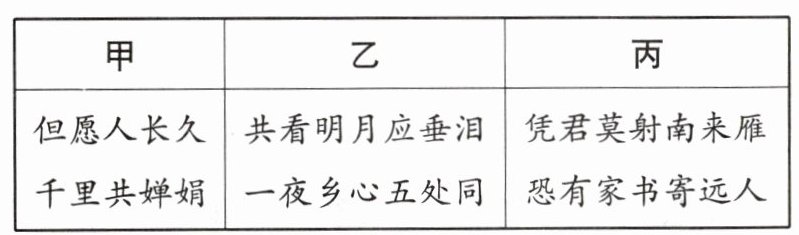 甲 乙 丙
但愿人长久 共看明月应垂泪 凭君莫射南来雁
千里共婵娟 一夜乡心五处同 恐有家书寄远人